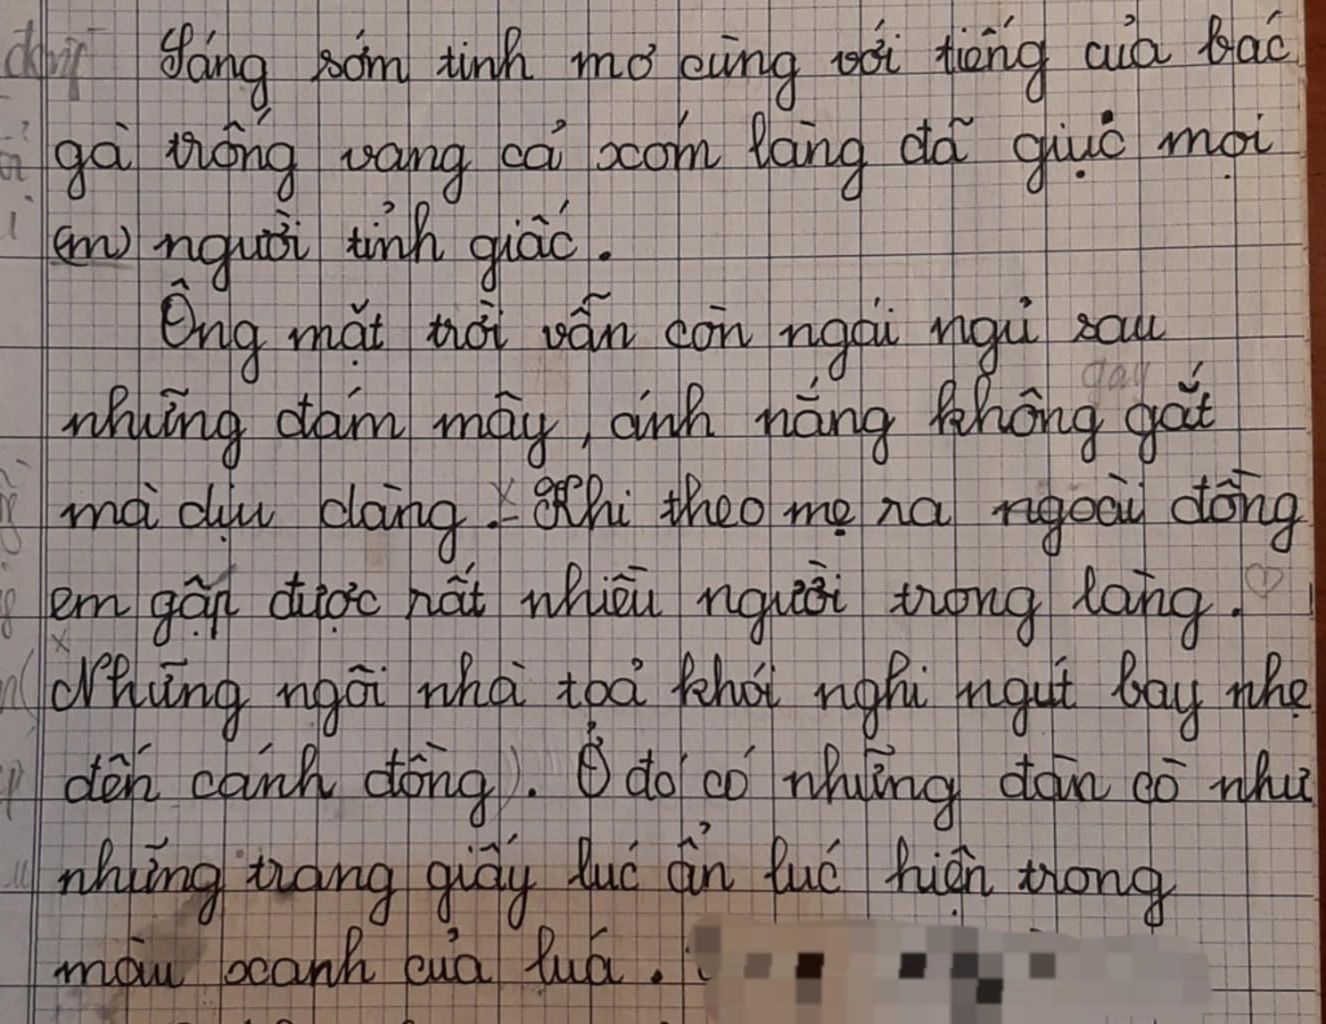 Sáng sớm tinh mơ cùng với tiếng của bác
gà trống vang cả xóm làng đã giục mọi
(m) người tỉnh giấc.
Ông mặt trời vẫn còn ngái ngủ sau
gay
những đám mây, ánh nắng không gắt
mà dịu dàng. Khi theo mẹ ra ngoài đồng
em gặp được rất nhiều người trong làng.
(Những ngôi nhà toả khói nghi ngút bay nhẹ
đến cánh đồng). Ở đó có những đàn cò như
những trang giấy lúc ẩn lúc hiện trong
màu xanh của lúa.